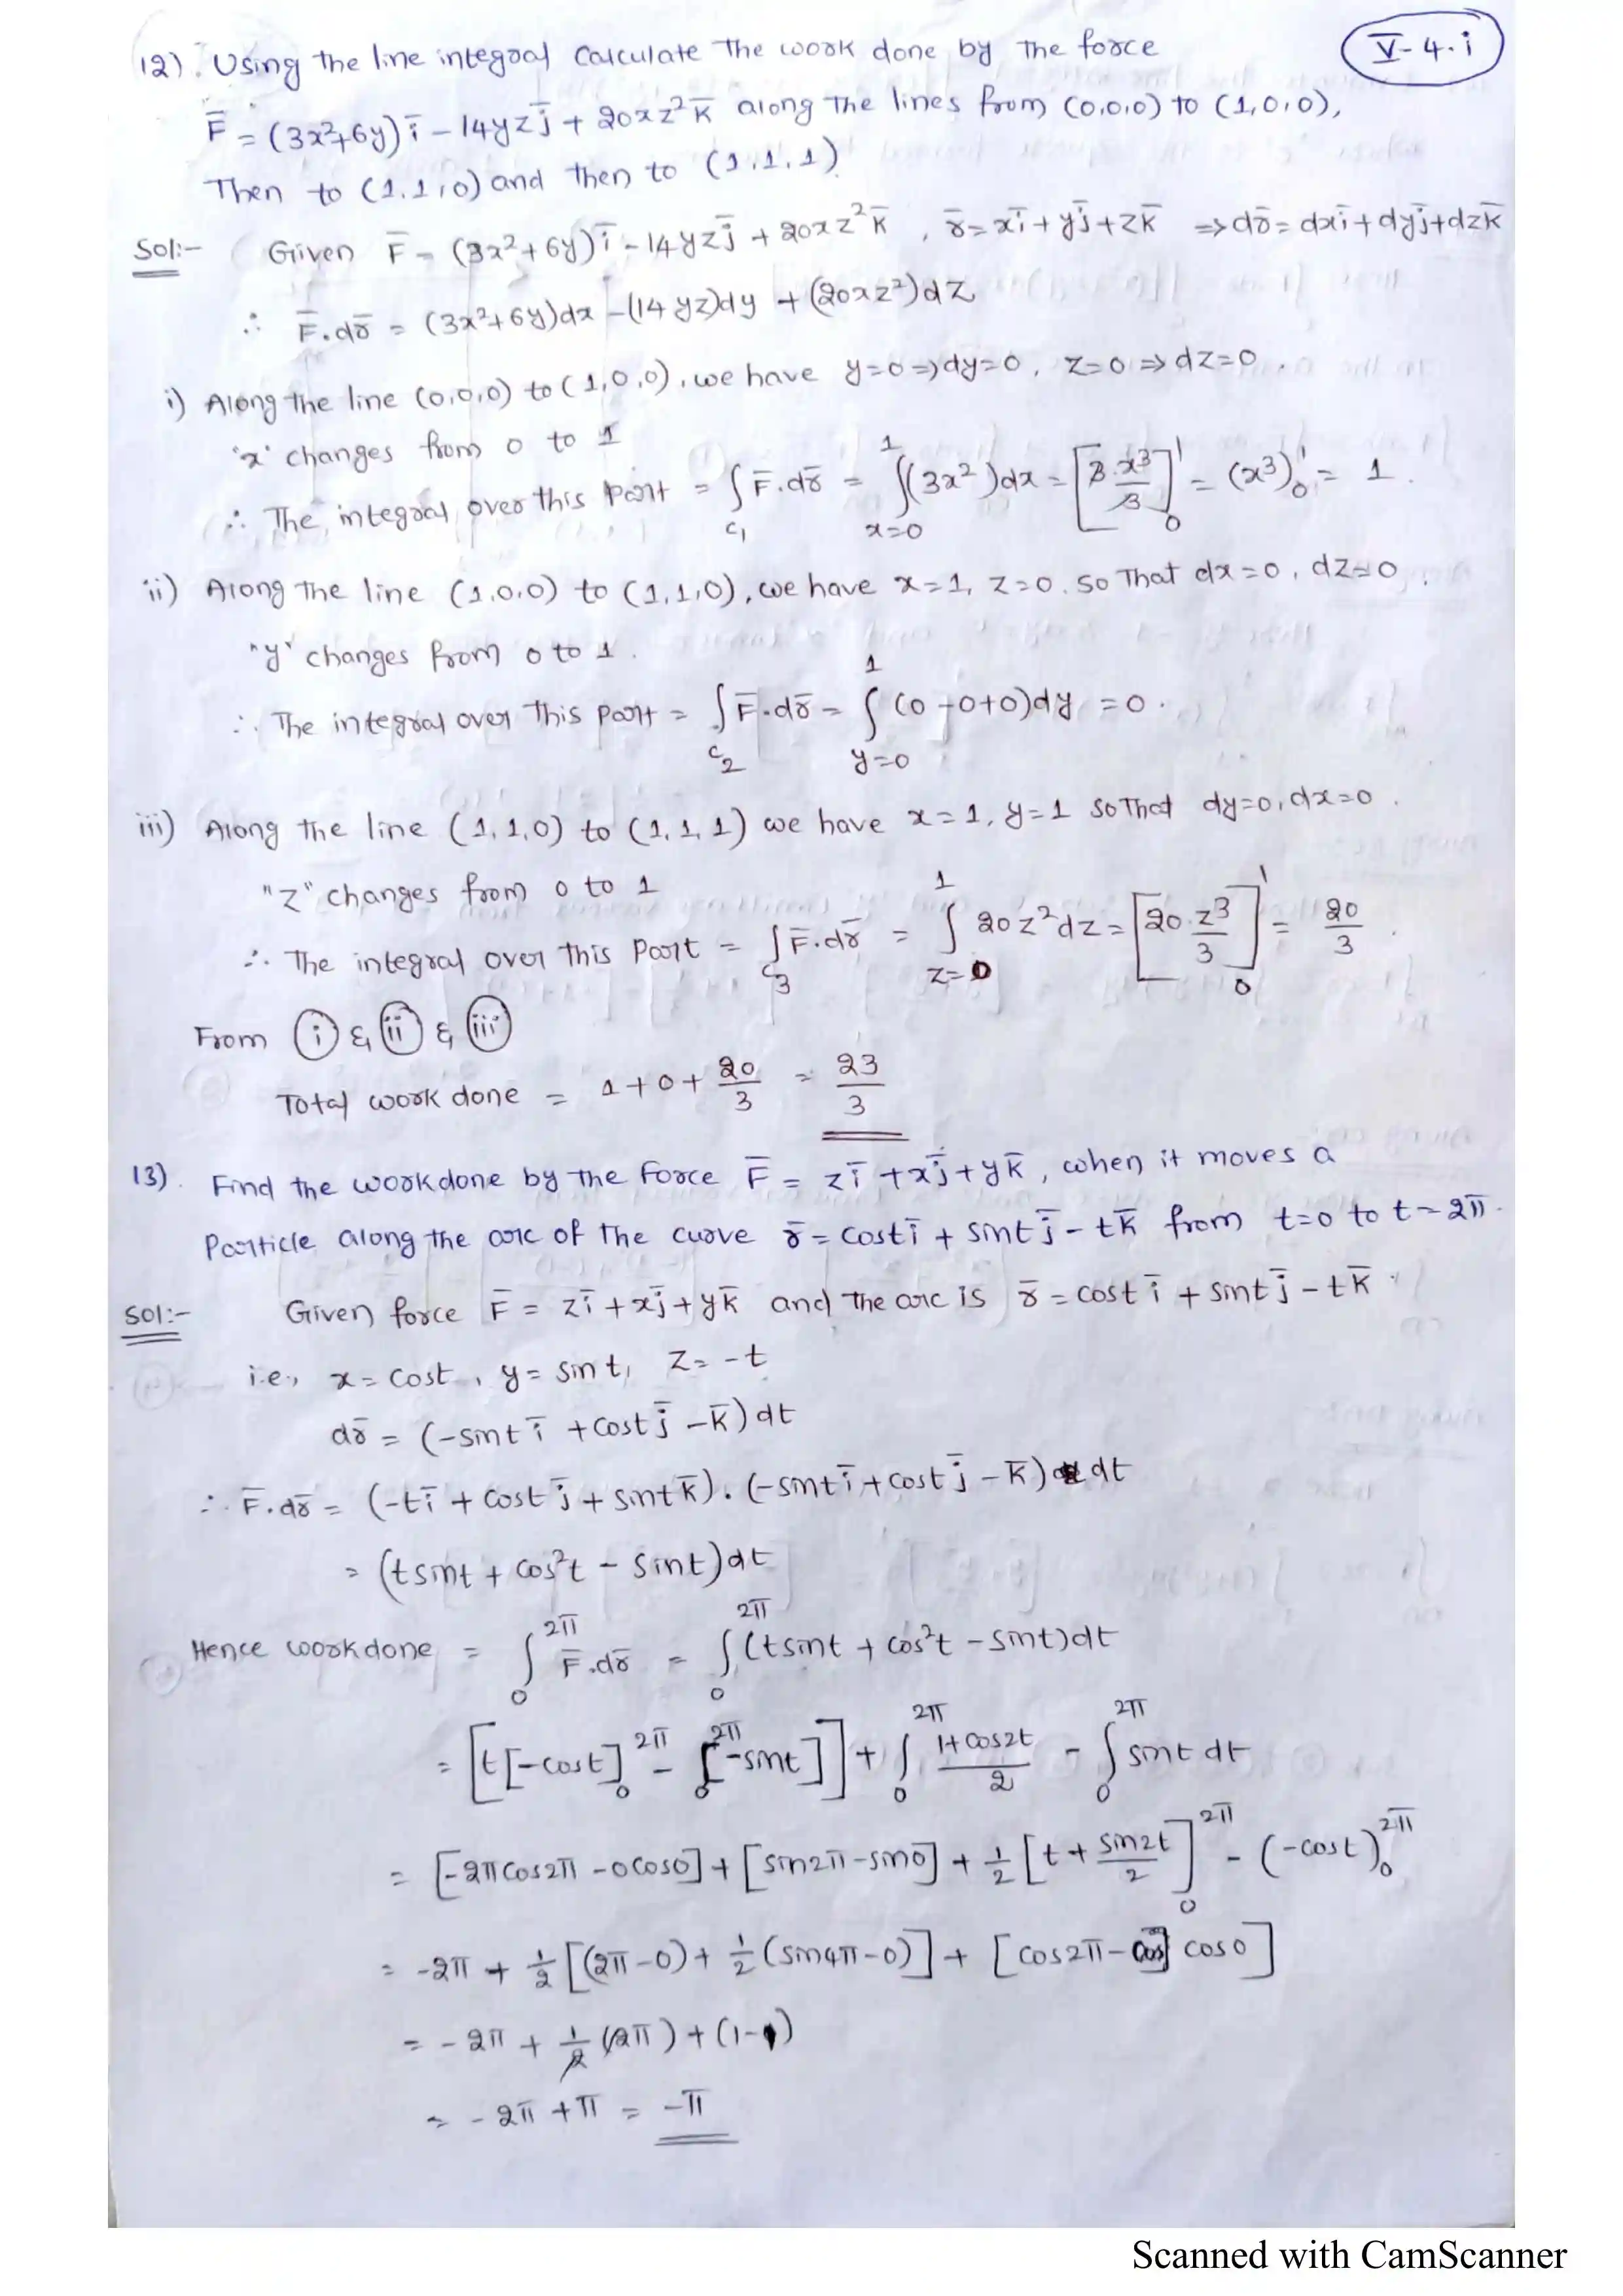 V-4.i
12). Using the line integral Calculate The work done by The force
F̄ = (3x²+6y) ī - 14yz j̄ + 20xz² k̄ along The lines from (0,0,0) to (1,0,0),
Then to (1,1,0) and then to (1,1,1)
Sol:- Given F̄ = (3x²+6y) ī - 14yz j̄ + 20xz² k̄ , r̄ = xī + yj̄ + zk̄ ⇒ dr̄ = dxī + dyj̄ + dzk̄
∴ F̄.dr̄ = (3x²+6y)dx - (14yz)dy + (20xz²)dz
i) Along The line (0,0,0) to (1,0,0), we have y=0 ⇒ dy=0, z=0 ⇒ dz=0.
'x' changes from 0 to 1
∴ The integral over this part = ∫_{C1} F̄.dr̄ = ∫_{x=0}^{1} (3x²)dx = [3·x³/3]_0^1 = (x³)_0^1 = 1.
ii) Along The line (1,0,0) to (1,1,0), we have x=1, z=0. so That dx=0, dz=0.
"y" changes from 0 to 1.
∴ The integral over This part = ∫_{C2} F̄.dr̄ = ∫_{y=0}^{1} (0-0+0)dy = 0.
iii) Along The line (1,1,0) to (1,1,1) we have x=1, y=1 so That dy=0, dx=0.
"z" changes from 0 to 1
∴ The integral over This Part = ∫_{C3} F̄.dr̄ = ∫_{z=0}^{1} 20z²dz = [20·z³/3]_0^1 = 20/3.
From (i) & (ii) & (iii)
Total work done = 1+0+20/3 = 23/3
13). Find the workdone by The Force F̄ = zī + xj̄ + yk̄, when it moves a
Particle along the arc of The curve r̄ = cost ī + sint j̄ - tk̄ from t=0 to t=2π.
Sol:- Given force F̄ = zī + xj̄ + yk̄ and The arc is r̄ = cost ī + sint j̄ - tk̄
i.e., x = cost, y = sint, z = -t
dr̄ = (-sint ī + cost j̄ - k̄)dt
∴ F̄.dr̄ = (-tī + cost j̄ + sint k̄).(-sint ī + cost j̄ - k̄) dt
= (tsint + cos²t - sint)dt
Hence workdone = ∫_0^{2π} F̄.dr̄ = ∫_0^{2π} (tsint + cos²t - sint)dt
= [t[-cost]_0^{2π} - [-sint]_0^{2π}] + ∫_0^{2π} (1+cos2t)/2 - ∫_0^{2π} sint dt
= [-2πcos2π - 0cos0] + [sin2π - sin0] + 1/2 [t + sin2t/2]_0^{2π} - (-cost)_0^{2π}
= -2π + 1/2 [(2π-0) + 1/2 (sin4π-0)] + [cos2π - cos0]
= -2π + 1/2 (2π) + (1-1)
= -2π + π = -π
Scanned with CamScanner